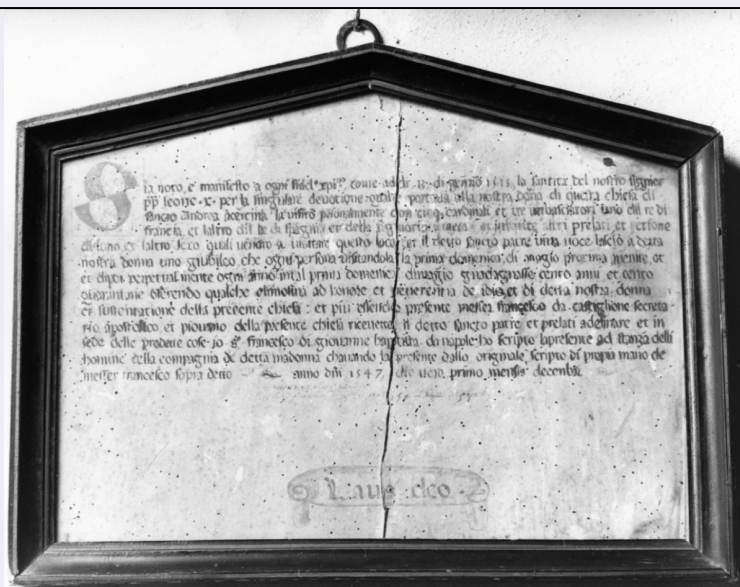 Sia noto, e manifesto a ogni fidel xpi° come addi 13 di gennaio 1515 la santita del nostro signior
pp leone x per la singulare devotione quale portava alla nostra dona di questa chiesa di
sancto Andrea acercina la visito personalmente con cinq cardinali et tre imbasciatori uno dil re di
francia et laltro dil re di spagna et della altri prelati et persone
di uno et laltro sexo quali venono a visitare questo loco et il detto sancto patre viva voce lascio a detta
nostra donna uno giubileo che ogni persona visitandola la prima domenica di maggio proxima
et dipoi perpetualmente ogni anno intal prima domenica di maggio guadagnasse cento anni et cento
quarantine offerendo qualche elimosina ad honore et reverentia de idio et di detta nostra donna
et sustentatione della presente chiesa et piu essendo presente messer francesco da castiglione secreta
rio apostolico et piovano della presente chiesa ricevette il detto sancto patre et prelati adesinare et in
fede delle predette cose io s francesco di giovanne baptista da napole ho scripto la presente ad stanza delli
homini della compagnia de detta madonna chavando la presente dallo originale scripto di propia mano de
messer francesco sopra detto anno dñi 1547 die vero primo mensis decembris
Laus deo